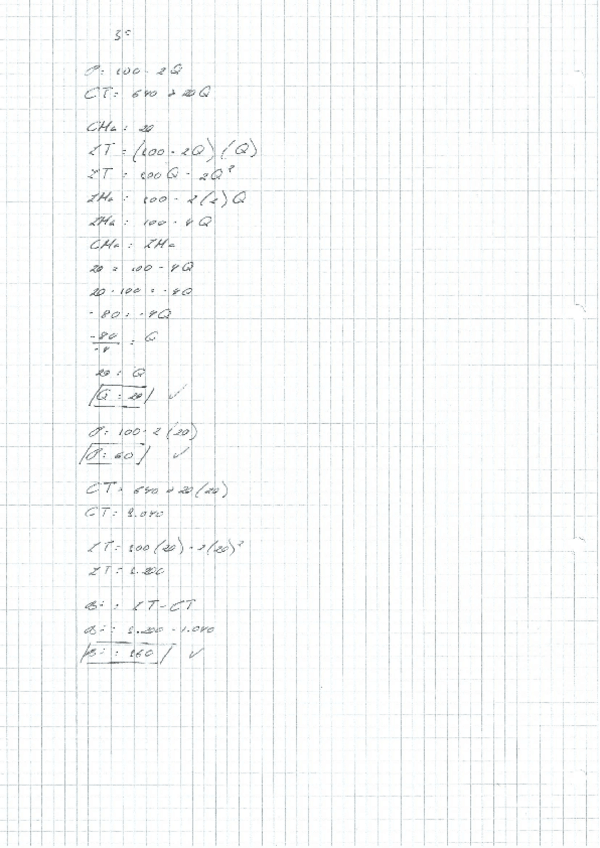 3º
P = 100 - 2Q
CT = 640 + 20Q
CMa = 20
IT = (100 - 2Q) (Q)
IT = 100Q - 2Q²
IMa = 100 - 2(2)Q
IMa = 100 - 4Q
CMa = IMa
20 = 100 - 4Q
20 - 100 = -4Q
-80 = -4Q
-80/-4 = Q
20 = Q
Q = 20 ✓
P = 100 - 2(20)
P = 60 ✓
CT = 640 + 20(20)
CT = 1.040
IT = 100(20) - 2(20)²
IT = 1.200
Bº = IT - CT
Bº = 1.200 - 1.040
Bº = 160 ✓